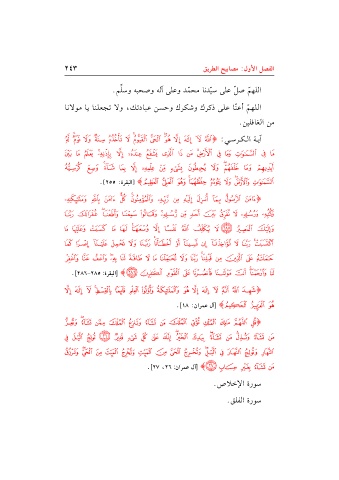 الفصل الأول: مصابيح الطريق ٢٤٣
اللهمّ صلّ على سيّدنا محمّد وعلى آله وصحبه وسلّم.
اللهمّ أعنّا على ذكرك وشكرك وحسن عبادتك، ولا تجعلنا يا مولانا
من الغافلين.
آية الكرسي: ﴿ٱللَّهُ لَآ إِلَٰهَ إِلَّا هُوَ ٱلۡحَيُّ ٱلۡقَيُّومُۚ لَا تَأۡخُذُهُۥ سِنَةٞ وَلَا نَوۡمٞۚ لَّهُۥ
مَا فِي ٱلسَّمَٰوَٰتِ وَمَا فِي ٱلۡأَرۡضِۗ مَن ذَا ٱلَّذِي يَشۡفَعُ عِندَهُۥٓ إِلَّا بِإِذۡنِهِۦۚ يَعۡلَمُ مَا بَيۡنَ
أَيۡدِيهِمۡ وَمَا خَلۡفَهُمۡۖ وَلَا يُحِيطُونَ بِشَيۡءٖ مِّنۡ عِلۡمِهِۦٓ إِلَّا بِمَا شَآءَۚ وَسِعَ كُرۡسِيُّهُ
ٱلسَّمَٰوَٰتِ وَٱلۡأَرۡضَۖ وَلَا يَـُٔودُهُۥ حِفۡظُهُمَاۚ وَهُوَ ٱلۡعَلِيُّ ٱلۡعَظِيمُ﴾ [البقرة: ٢٥٥].
﴿ءَامَنَ ٱلرَّسُولُ بِمَآ أُنزِلَ إِلَيۡهِ مِن رَّبِّهِۦ وَٱلۡمُؤۡمِنُونَۚ كُلٌّ ءَامَنَ بِٱللَّهِ وَمَلَٰٓئِكَتِهِۦ
وَكُتُبِهِۦ وَرُسُلِهِۦ لَا نُفَرِّقُ بَيۡنَ أَحَدٖ مِّن رُّسُلِهِۦۚ وَقَالُواْ سَمِعۡنَا وَأَطَعۡنَاۖ غُفۡرَانَكَ رَبَّنَا
وَإِلَيۡكَ ٱلۡمَصِيرُ ۝٢٨٥ لَا يُكَلِّفُ ٱللَّهُ نَفۡسًا إِلَّا وُسۡعَهَاۚ لَهَا مَا كَسَبَتۡ وَعَلَيۡهَا مَا
ٱكۡتَسَبَتۡۗ رَبَّنَا لَا تُؤَاخِذۡنَآ إِن نَّسِينَآ أَوۡ أَخۡطَأۡنَاۚ رَبَّنَا وَلَا تَحۡمِلۡ عَلَيۡنَآ إِصۡرٗا كَمَا
حَمَلۡتَهُۥ عَلَى ٱلَّذِينَ مِن قَبۡلِنَاۚ رَبَّنَا وَلَا تُحَمِّلۡنَا مَا لَا طَاقَةَ لَنَا بِهِۦۖ وَٱعۡفُ عَنَّا وَٱغۡفِرۡ
لَنَا وَٱرۡحَمۡنَآۚ أَنتَ مَوۡلَىٰنَا فَٱنصُرۡنَا عَلَى ٱلۡقَوۡمِ ٱلۡكَٰفِرِينَ ۝٢٨٦﴾ [البقرة: ٢٨٥-٢٨٦].
﴿شَهِدَ ٱللَّهُ أَنَّهُۥ لَآ إِلَٰهَ إِلَّا هُوَ وَٱلۡمَلَٰٓئِكَةُ وَأُوْلُواْ ٱلۡعِلۡمِ قَآئِمَۢا بِٱلۡقِسۡطِۚ لَآ إِلَٰهَ إِلَّا
هُوَ ٱلۡعَزِيزُ ٱلۡحَكِيمُ﴾ [آل عمران: ١٨].
﴿قُلِ ٱللَّهُمَّ مَٰلِكَ ٱلۡمُلۡكِ تُؤۡتِي ٱلۡمُلۡكَ مَن تَشَآءُ وَتَنزِعُ ٱلۡمُلۡكَ مِمَّن تَشَآءُ وَتُعِزُّ
مَن تَشَآءُ وَتُذِلُّ مَن تَشَآءُۖ بِيَدِكَ ٱلۡخَيۡرُۖ إِنَّكَ عَلَىٰ كُلِّ شَيۡءٖ قَدِيرٞ ۝٢٦ تُولِجُ ٱلَّيۡلَ فِي
ٱلنَّهَارِ وَتُولِجُ ٱلنَّهَارَ فِي ٱلَّيۡلِۖ وَتُخۡرِجُ ٱلۡحَيَّ مِنَ ٱلۡمَيِّتِ وَتُخۡرِجُ ٱلۡمَيِّتَ مِنَ ٱلۡحَيِّۖ وَتَرۡزُقُ
مَن تَشَآءُ بِغَيۡرِ حِسَابٖ ۝٢٧﴾ [آل عمران: ٢٦، ٢٧].
سورة الإخلاص.
سورة الفلق.